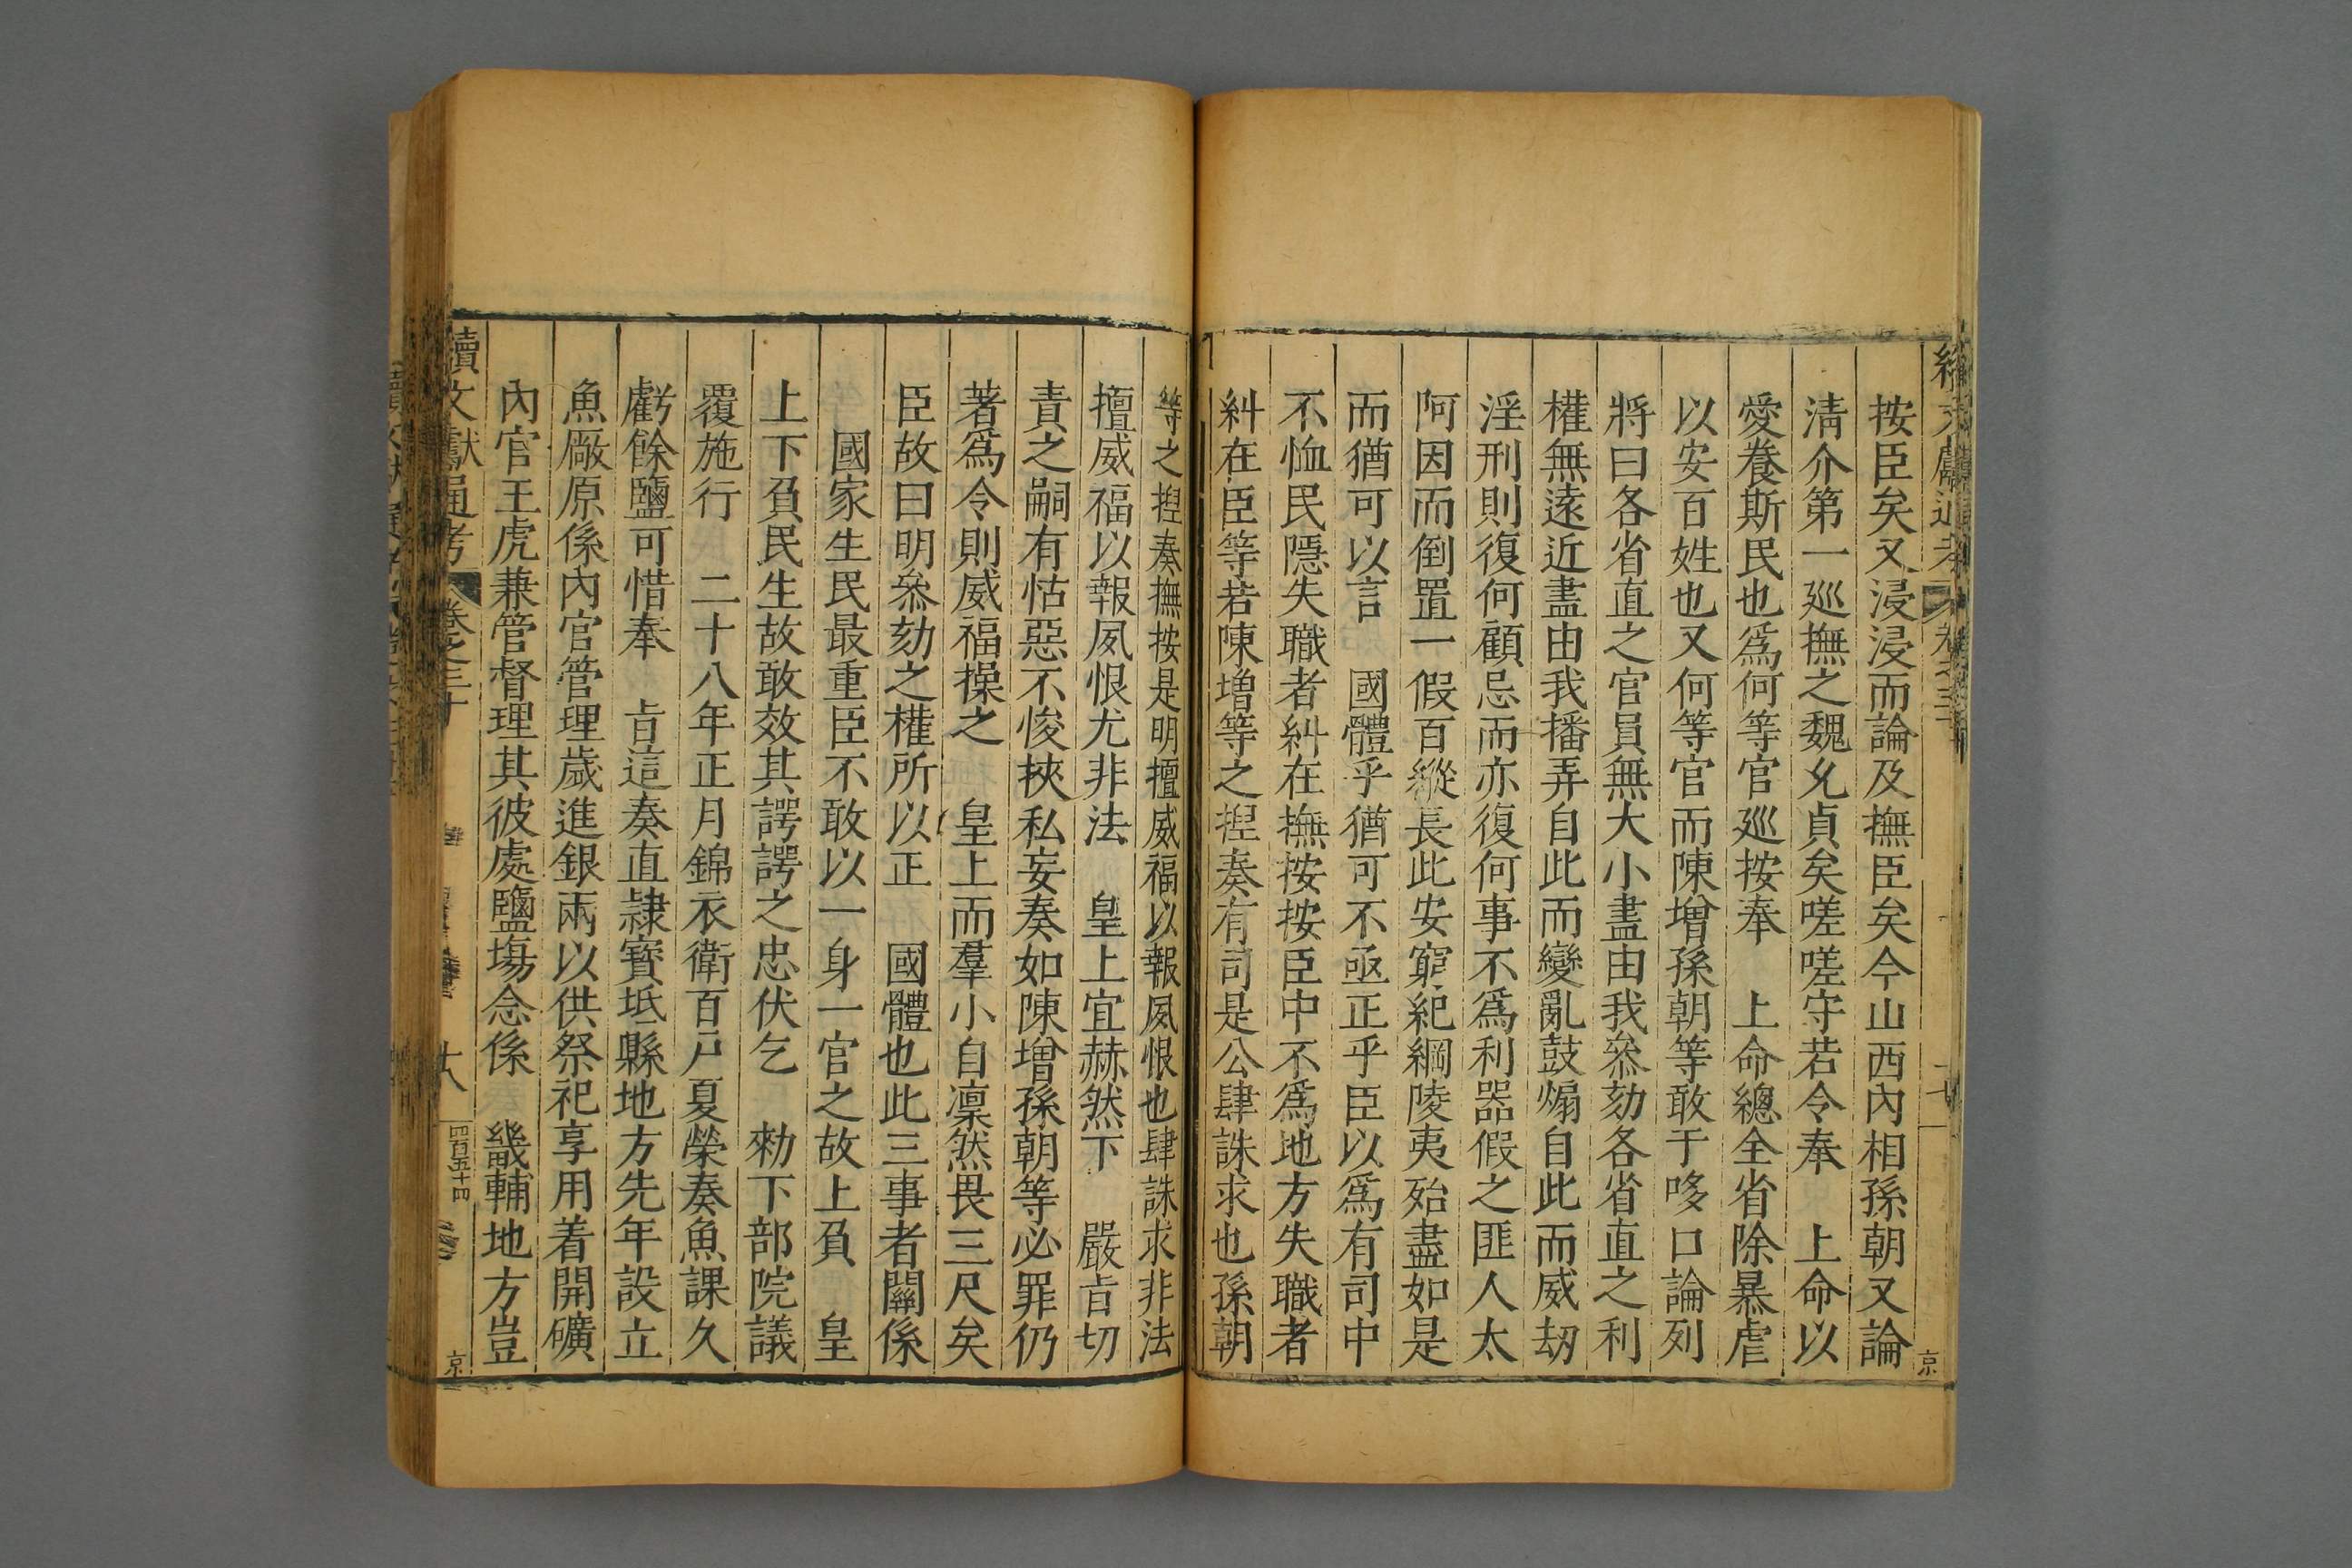 按臣矣又浸浸而論及撫臣矣今山西內相孫朝又論
清介第一廵撫之魏允貞矣嗟嗟守若令奉　上命以
愛養斯民也爲何等官廵按奉　上命總全省除暴虐
以安百姓也又何等官而陳增孫朝等敢于哆口論列
將曰各省直之官員無大小盡由我叅劾各省直之利
權無遠近盡由我播弄自此而變亂鼓煽自此而威刼
淫刑則復何顧忌而亦復何事不爲利器假之匪人太
阿因而倒置一假百縱長此安窮紀綱陵夷殆盡如是
而猶可以言　國體乎猶可不亟正乎臣以爲有司中
不恤民隱失職者糾在撫按按臣中不爲地方失職者
糾在臣等若陳增等之揑奏有司是公肆誅求也孫朝
等之揑奏撫按是明擅威福以報夙恨也肆誅求非法
擅威福以報夙恨尤非法　皇上宜赫然下　嚴旨切
責之嗣有怙惡不悛挾私妄奏如陳增孫朝等必罪仍
著爲令則威福操之　皇上而羣小自凛然畏三尺矣
臣故曰明叅劾之權所以正　國體也此三事者關係
國家生民最重臣不敢以一身一官之故上負　皇
上下負民生故敢效其諤諤之忠伏乞　勑下部院議
覆施行　二十八年正月錦衣衛百戶夏榮奏魚課久
虧餘鹽可惜奉　旨這奏直隷寳坻縣地方先年設立
魚厰原係內官管理歲進銀兩以供祭祀享用着開礦
內官王虎兼管督理其彼處鹽塲念係　畿輔地方豈
續文獻通考　卷之三十　十八　四百五十四
京
京